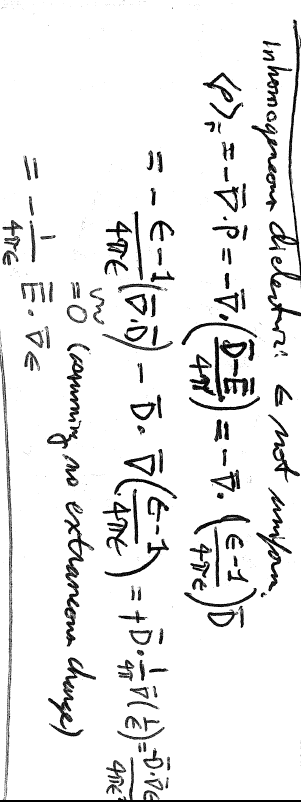 inhomogeneous dielectric: ε not uniform.
⟨ρ⟩_r̄ = -∇̄·P̄ = -∇̄·((D̄-Ē)/4π) = -∇̄·((ε-1)/4πε)D̄
= -(ε-1)/4πε (∇̄·D̄) - D̄·∇̄((ε-1)/4πε) = +D̄·1/4π ∇̄(1/ε) = D̄·∇̄ε/4πε²
=0 (assuming no extraneous charge)
= -1/4πε Ē·∇̄ε